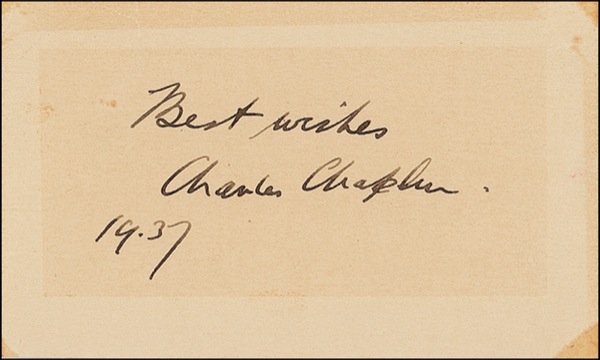 Best wishes
Charles Chaplin.
19.37